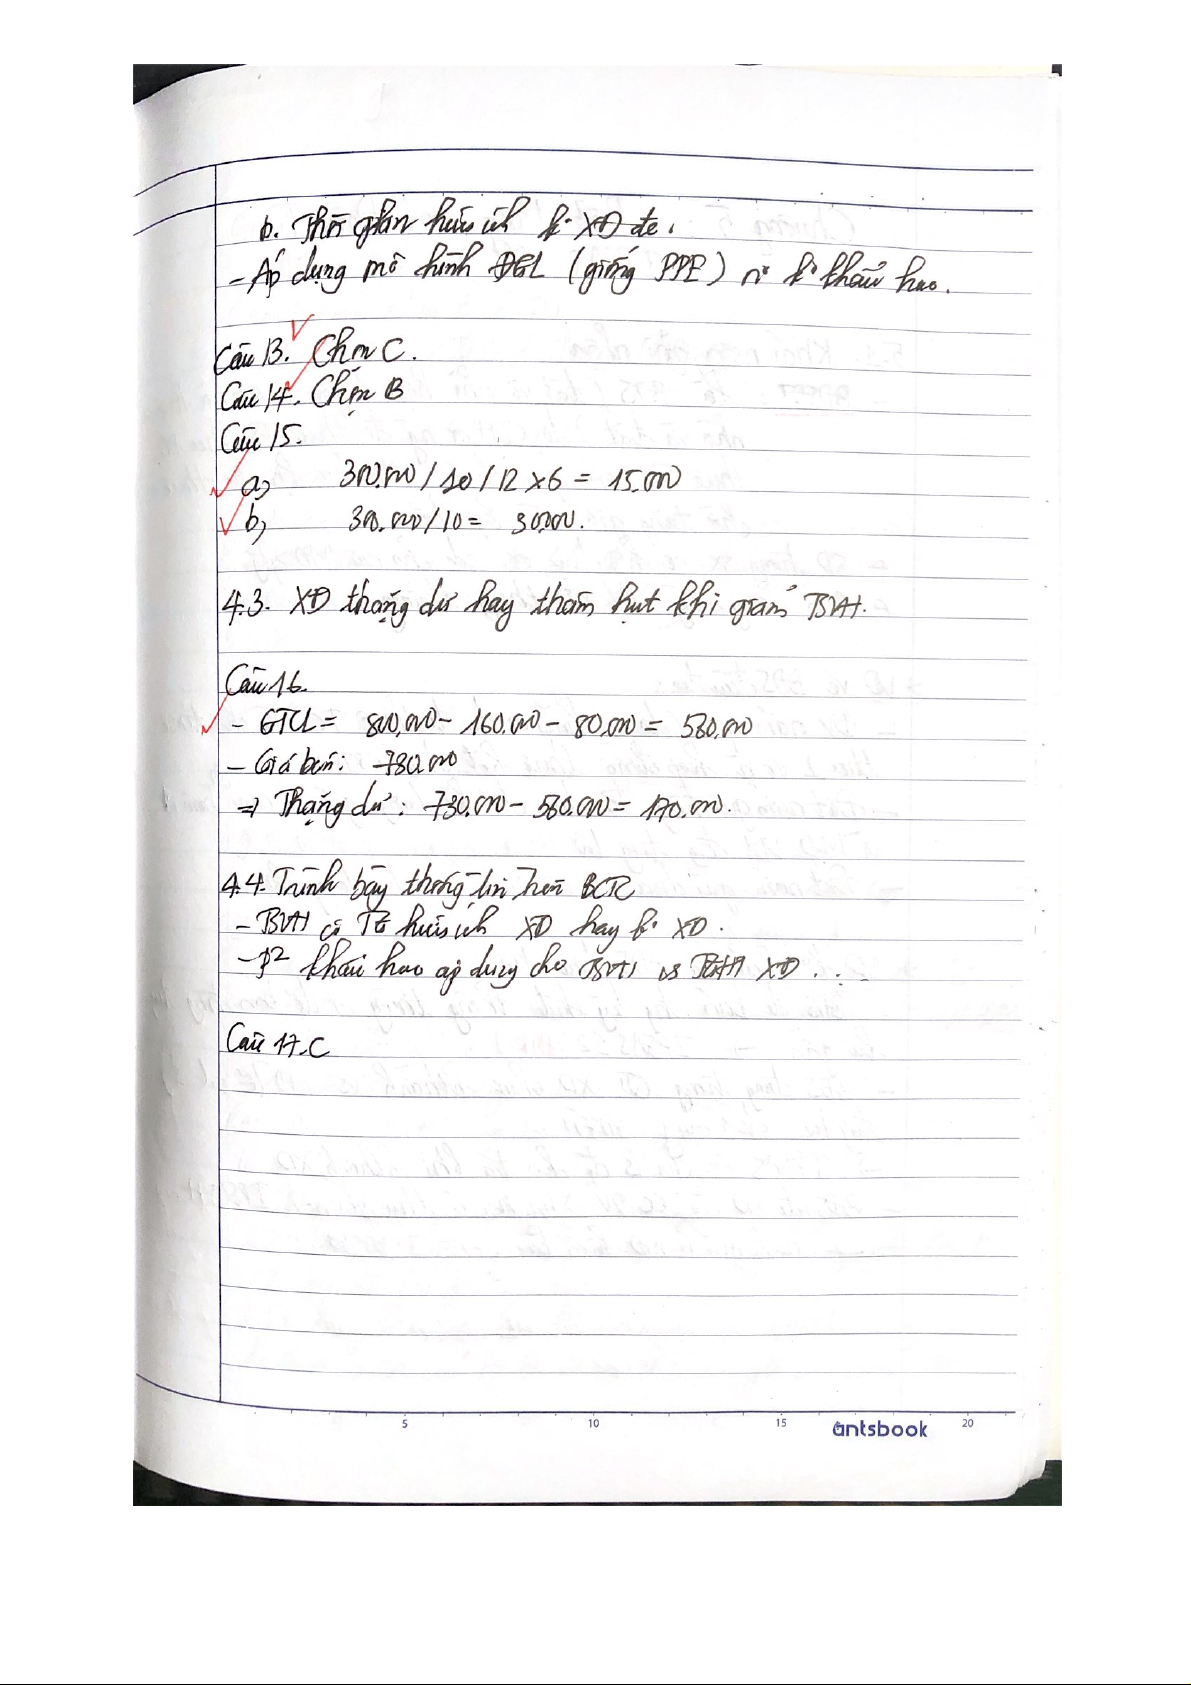 b. Thời gian hữu ích k. XĐ đc.
- Áp dụng mô hình ĐGL (giống PPE) n k khấu hao.
Câu 13. Chọn C.
Câu 14. Chọn B
Câu 15.
a) 300.000 / 10 / 12 x 6 = 15.000
b) 300.000 / 10 = 30.000.
4.3. XĐ thặng dư hay thâm hụt khi giảm TSVH.
Câu 16.
- GTCL = 800.000 - 160.000 - 80.000 = 560.000
- Giá bán: 730.000
=> Thặng dư: 730.000 - 560.000 = 170.000.
4.4. Trình bày thông tin trên BCTC
- TSVH có TG hữu ích XĐ hay k. XĐ.
- P² khấu hao áp dụng cho TSVH vs TGHI XĐ...
Câu 17. C
5 10 15 antsbook 20